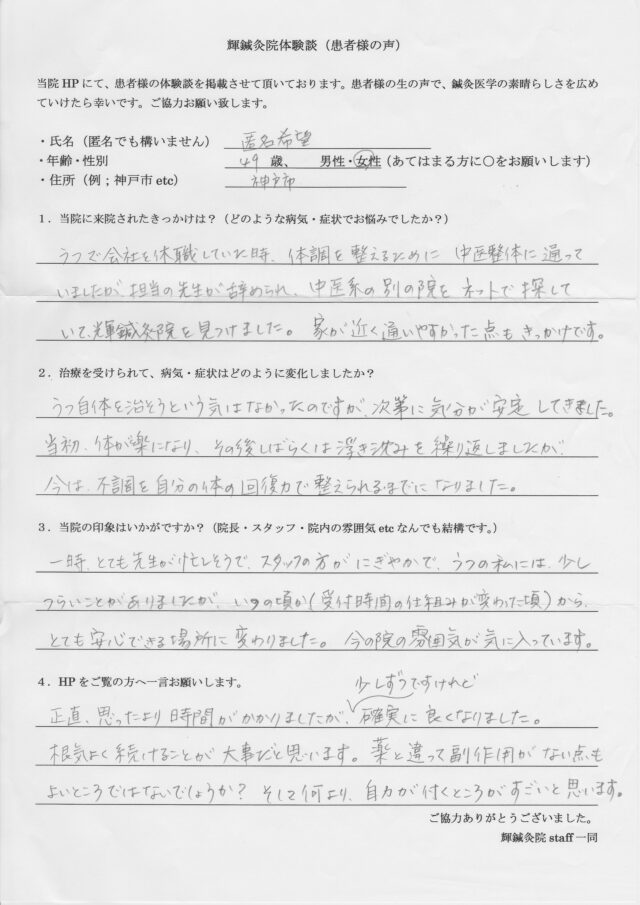 輝鍼灸院体験談（患者様の声）
当院HPにて、患者様の体験談を掲載させて頂いております。患者様の生の声で、鍼灸医学の素晴らしさを広め
ていけたら幸いです。ご協力お願い致します。
・氏名（匿名でも構いません） 匿名希望
・年齢・性別 49 歳、 男性・女性（あてはまる方に○をお願いします）
・住所（例；神戸市 etc） 神戸市
1．当院に来院されたきっかけは？（どのような病気・症状でお悩みでしたか？）
うつで会社を休職していた時、体調を整えるために 中医整体に通って
いましたが、担当の先生が辞められ、中医系の別の院を ネットで探して
いて、輝鍼灸院を見つけました。 家が近く通いやすかった点も きっかけです。
2．治療を受けられて、病気・症状はどのように変化しましたか？
うつ自体を治そうという気はなかったのですが、次第に気分が安定してきました。
当初、体が楽になり、その後しばらくは浮き沈みを繰り返しましたが、
今は、不調を自分の体の回復力で整えられるまでになりました。
3．当院の印象はいかがですか？（院長・スタッフ・院内の雰囲気 etc なんでも結構です。）
一時、とても先生が忙しそうで、スタッフの方がにぎやかで、うつの私には、少し
つらいことがありましたが、いつの頃か（受付時間の仕組みが変わった頃）から、
とても安心できる場所に変わりました。 今の院の雰囲気が気に入っています。
4．HPをご覧の方へ一言お願いします。
少しずつですけれど
正直、思ったより時間がかかりましたが、確実に良くなりました。
根気よく続けることが大事だと思います。薬と違って副作用がない点も
よいところではないでしょうか？ そして何より、自力が付くところがすごいと思います。
ご協力ありがとうございました。
輝鍼灸院 staff 一同